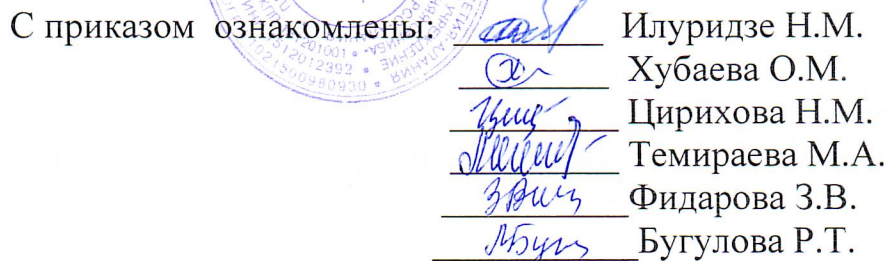 С приказом ознакомлены: Илуридзе Н.М.
Хубаева О.М.
Цирихова Н.М.
Темираева М.А.
Фидарова З.В.
Бугулова Р.Т.